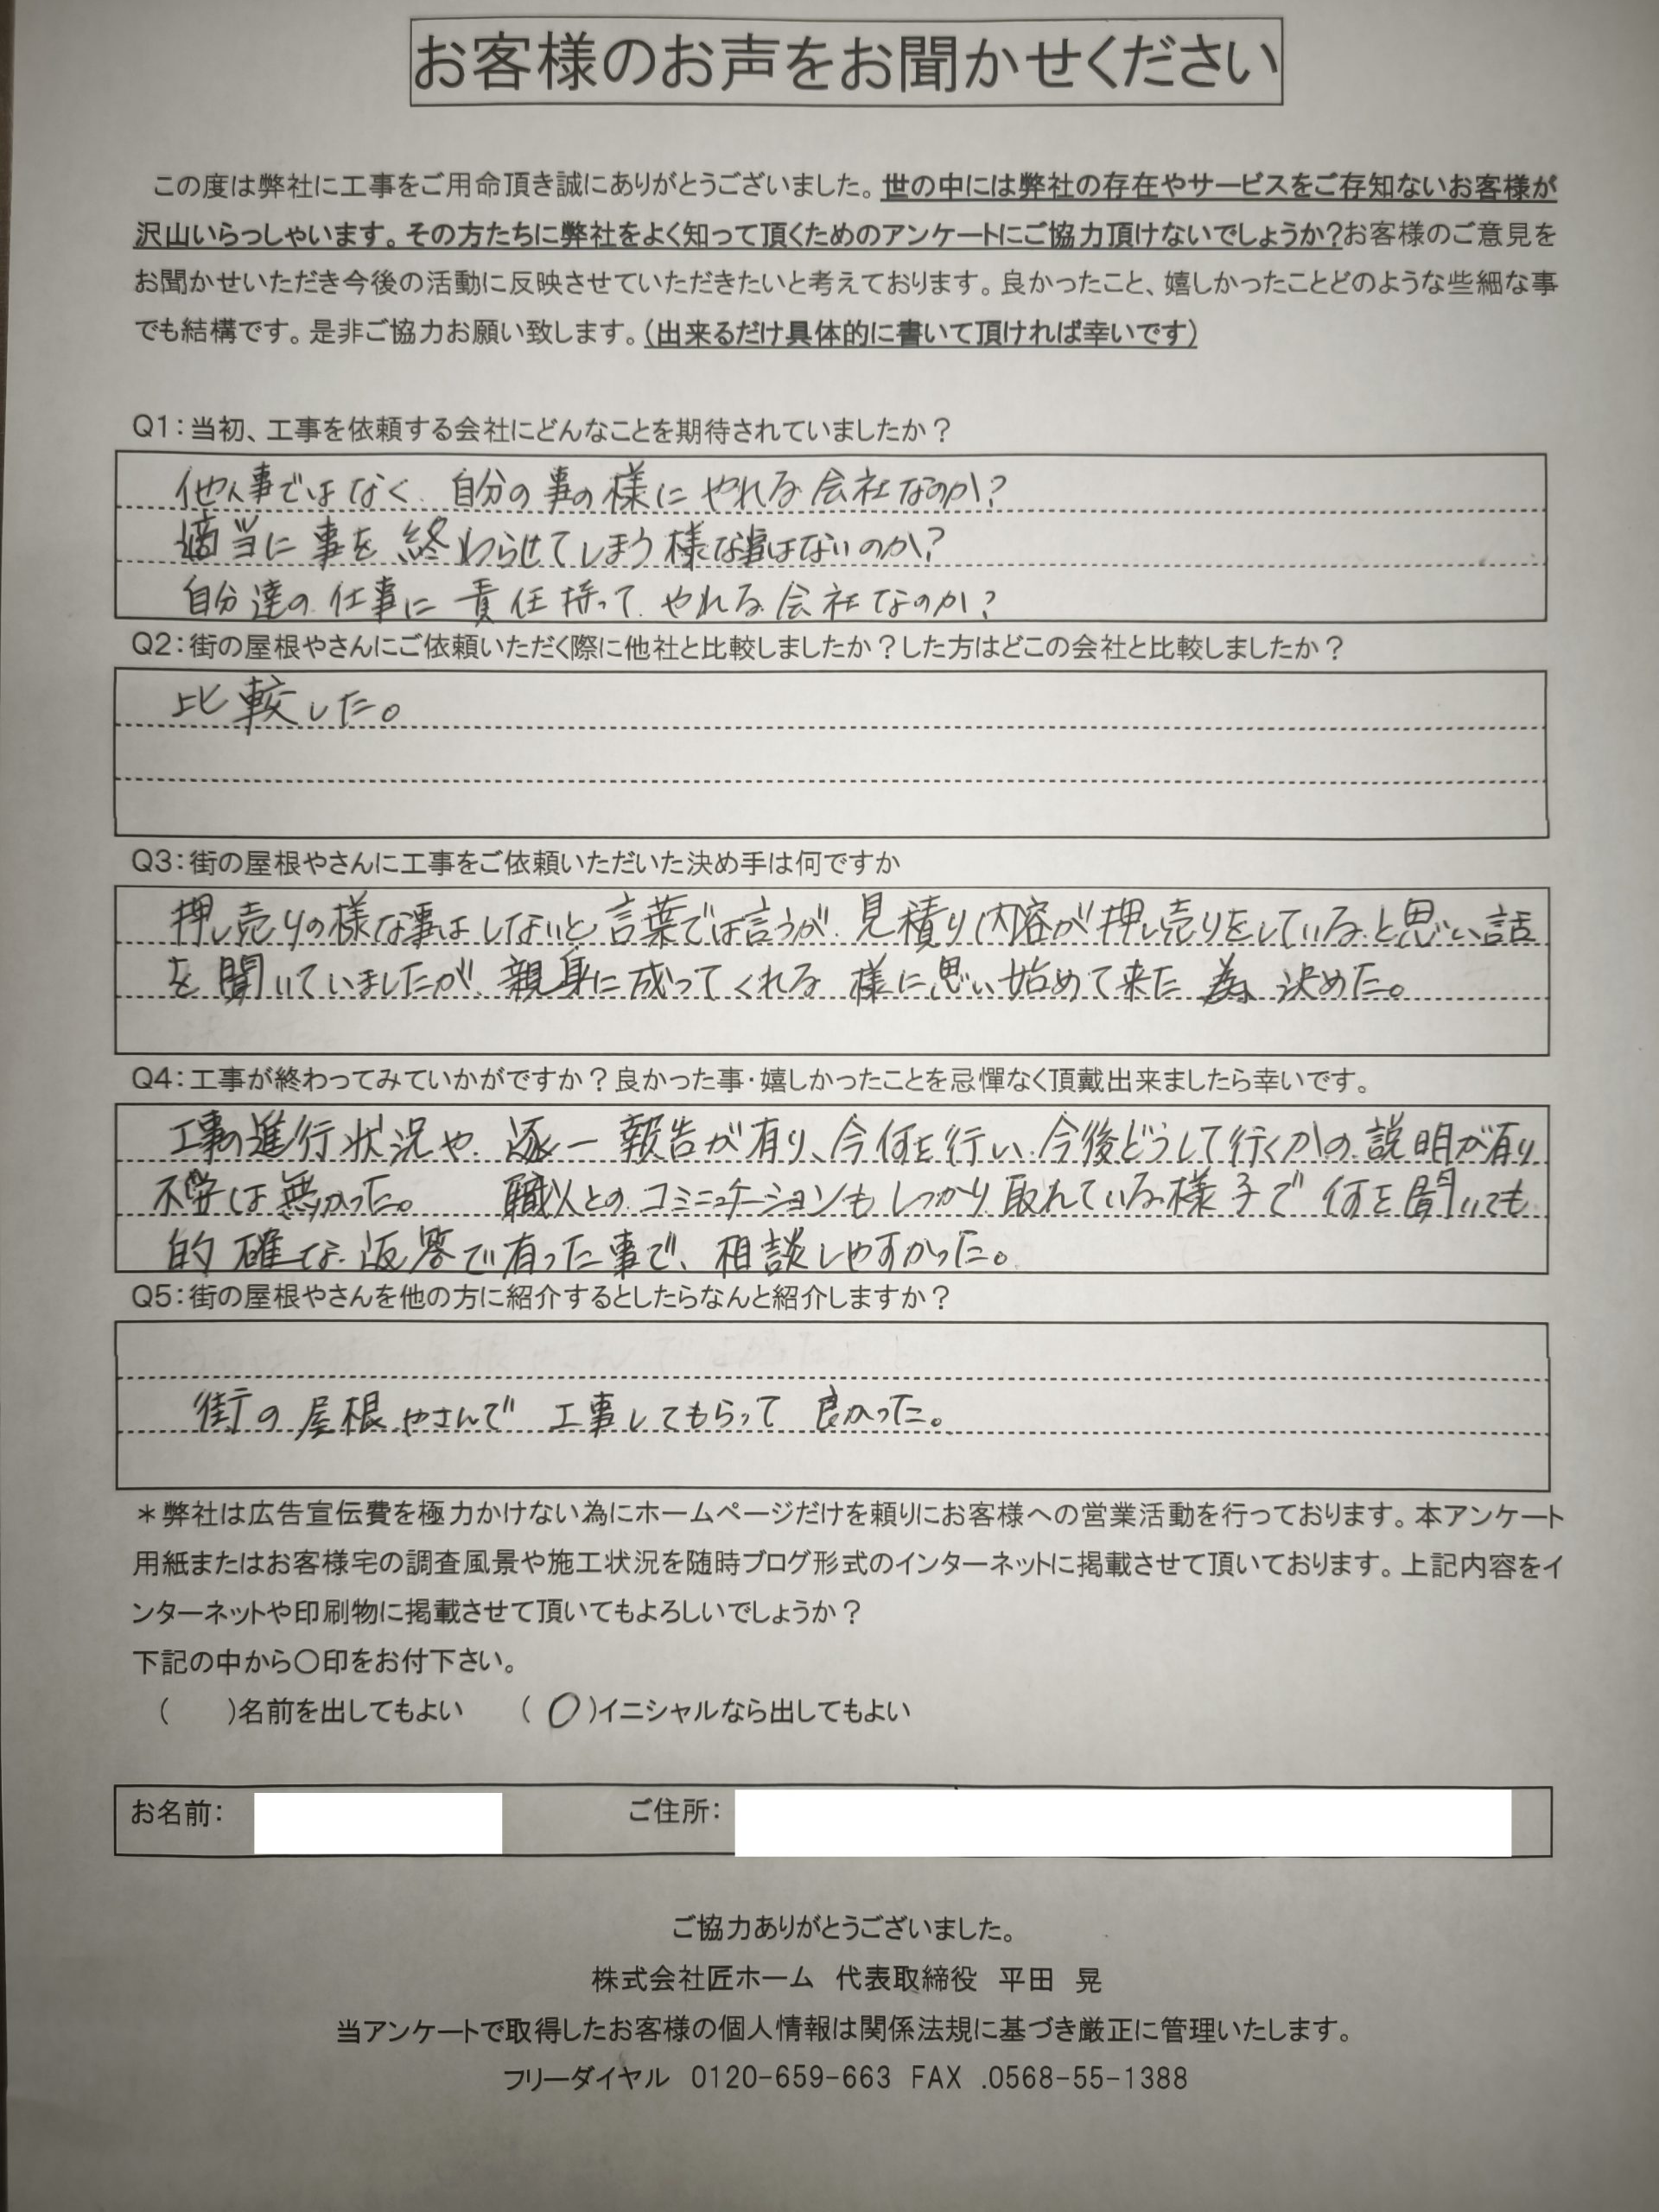 お客様のお声をお聞かせください
この度は弊社に工事をご用命頂き誠にありがとうございました。世の中には弊社の存在やサービスをご存知ないお客様が
沢山いらっしゃいます。その方たちに弊社をよく知って頂くためのアンケートにご協力頂けないでしょうか?お客様のご意見を
お聞かせいただき今後の活動に反映させていただきたいと考えております。良かったこと、嬉しかったことどのような些細な事
でも結構です。是非ご協力お願い致します。(出来るだけ具体的に書いて頂ければ幸いです)
Q1:当初、工事を依頼する会社にどんなことを期待されていましたか?
他人事ではなく、自分の事の様にやれる会社なのか?
適当に事を終わらせてしまう様な事はないのか?
自分達の仕事に責任持ってやれる会社なのか?
Q2:街の屋根やさんにご依頼いただく際に他社と比較しましたか?した方はどこの会社と比較しましたか?
比較した。
Q3:街の屋根やさんに工事をご依頼いただいた決め手は何ですか
押し売りの様な事はしないと言葉では言うが、見積り内容が押し売りをしていると思い話
を聞いていましたが、親身に成ってくれる様に思い始めて来た為、決めた。
Q4:工事が終わってみていかがですか?良かった事・嬉しかったことを忌憚なく頂戴出来ましたら幸いです。
工事の進行状況や、逐一報告が有り、今何を行い、今後どうして行くかの説明が有り
は無かった。 職人とのコミニュケーションもしっかり取れている様子で何を聞いても
的確な返答で有った事で、相談しやすかった。
Q5:街の屋根やさんを他の方に紹介するとしたらなんと紹介しますか?
街の屋根やさんで工事してもらって良かった。
*弊社は広告宣伝費を極力かけない為にホームページだけを頼りにお客様への営業活動を行っております。本アンケート
用紙またはお客様宅の調査風景や施工状況を随時ブログ形式のインターネットに掲載させて頂いております。上記内容をイ
ンターネットや印刷物に掲載させて頂いてもよろしいでしょうか?
下記の中から〇印をお付下さい。
( )名前を出してもよい (〇)イニシャルなら出してもよい
お名前: ご住所:
ご協力ありがとうございました。
株式会社匠ホーム 代表取締役 平田 晃
当アンケートで取得したお客様の個人情報は関係法規に基づき厳正に管理いたします。
フリーダイヤル 0120-659-663 FAX .0568-55-1388